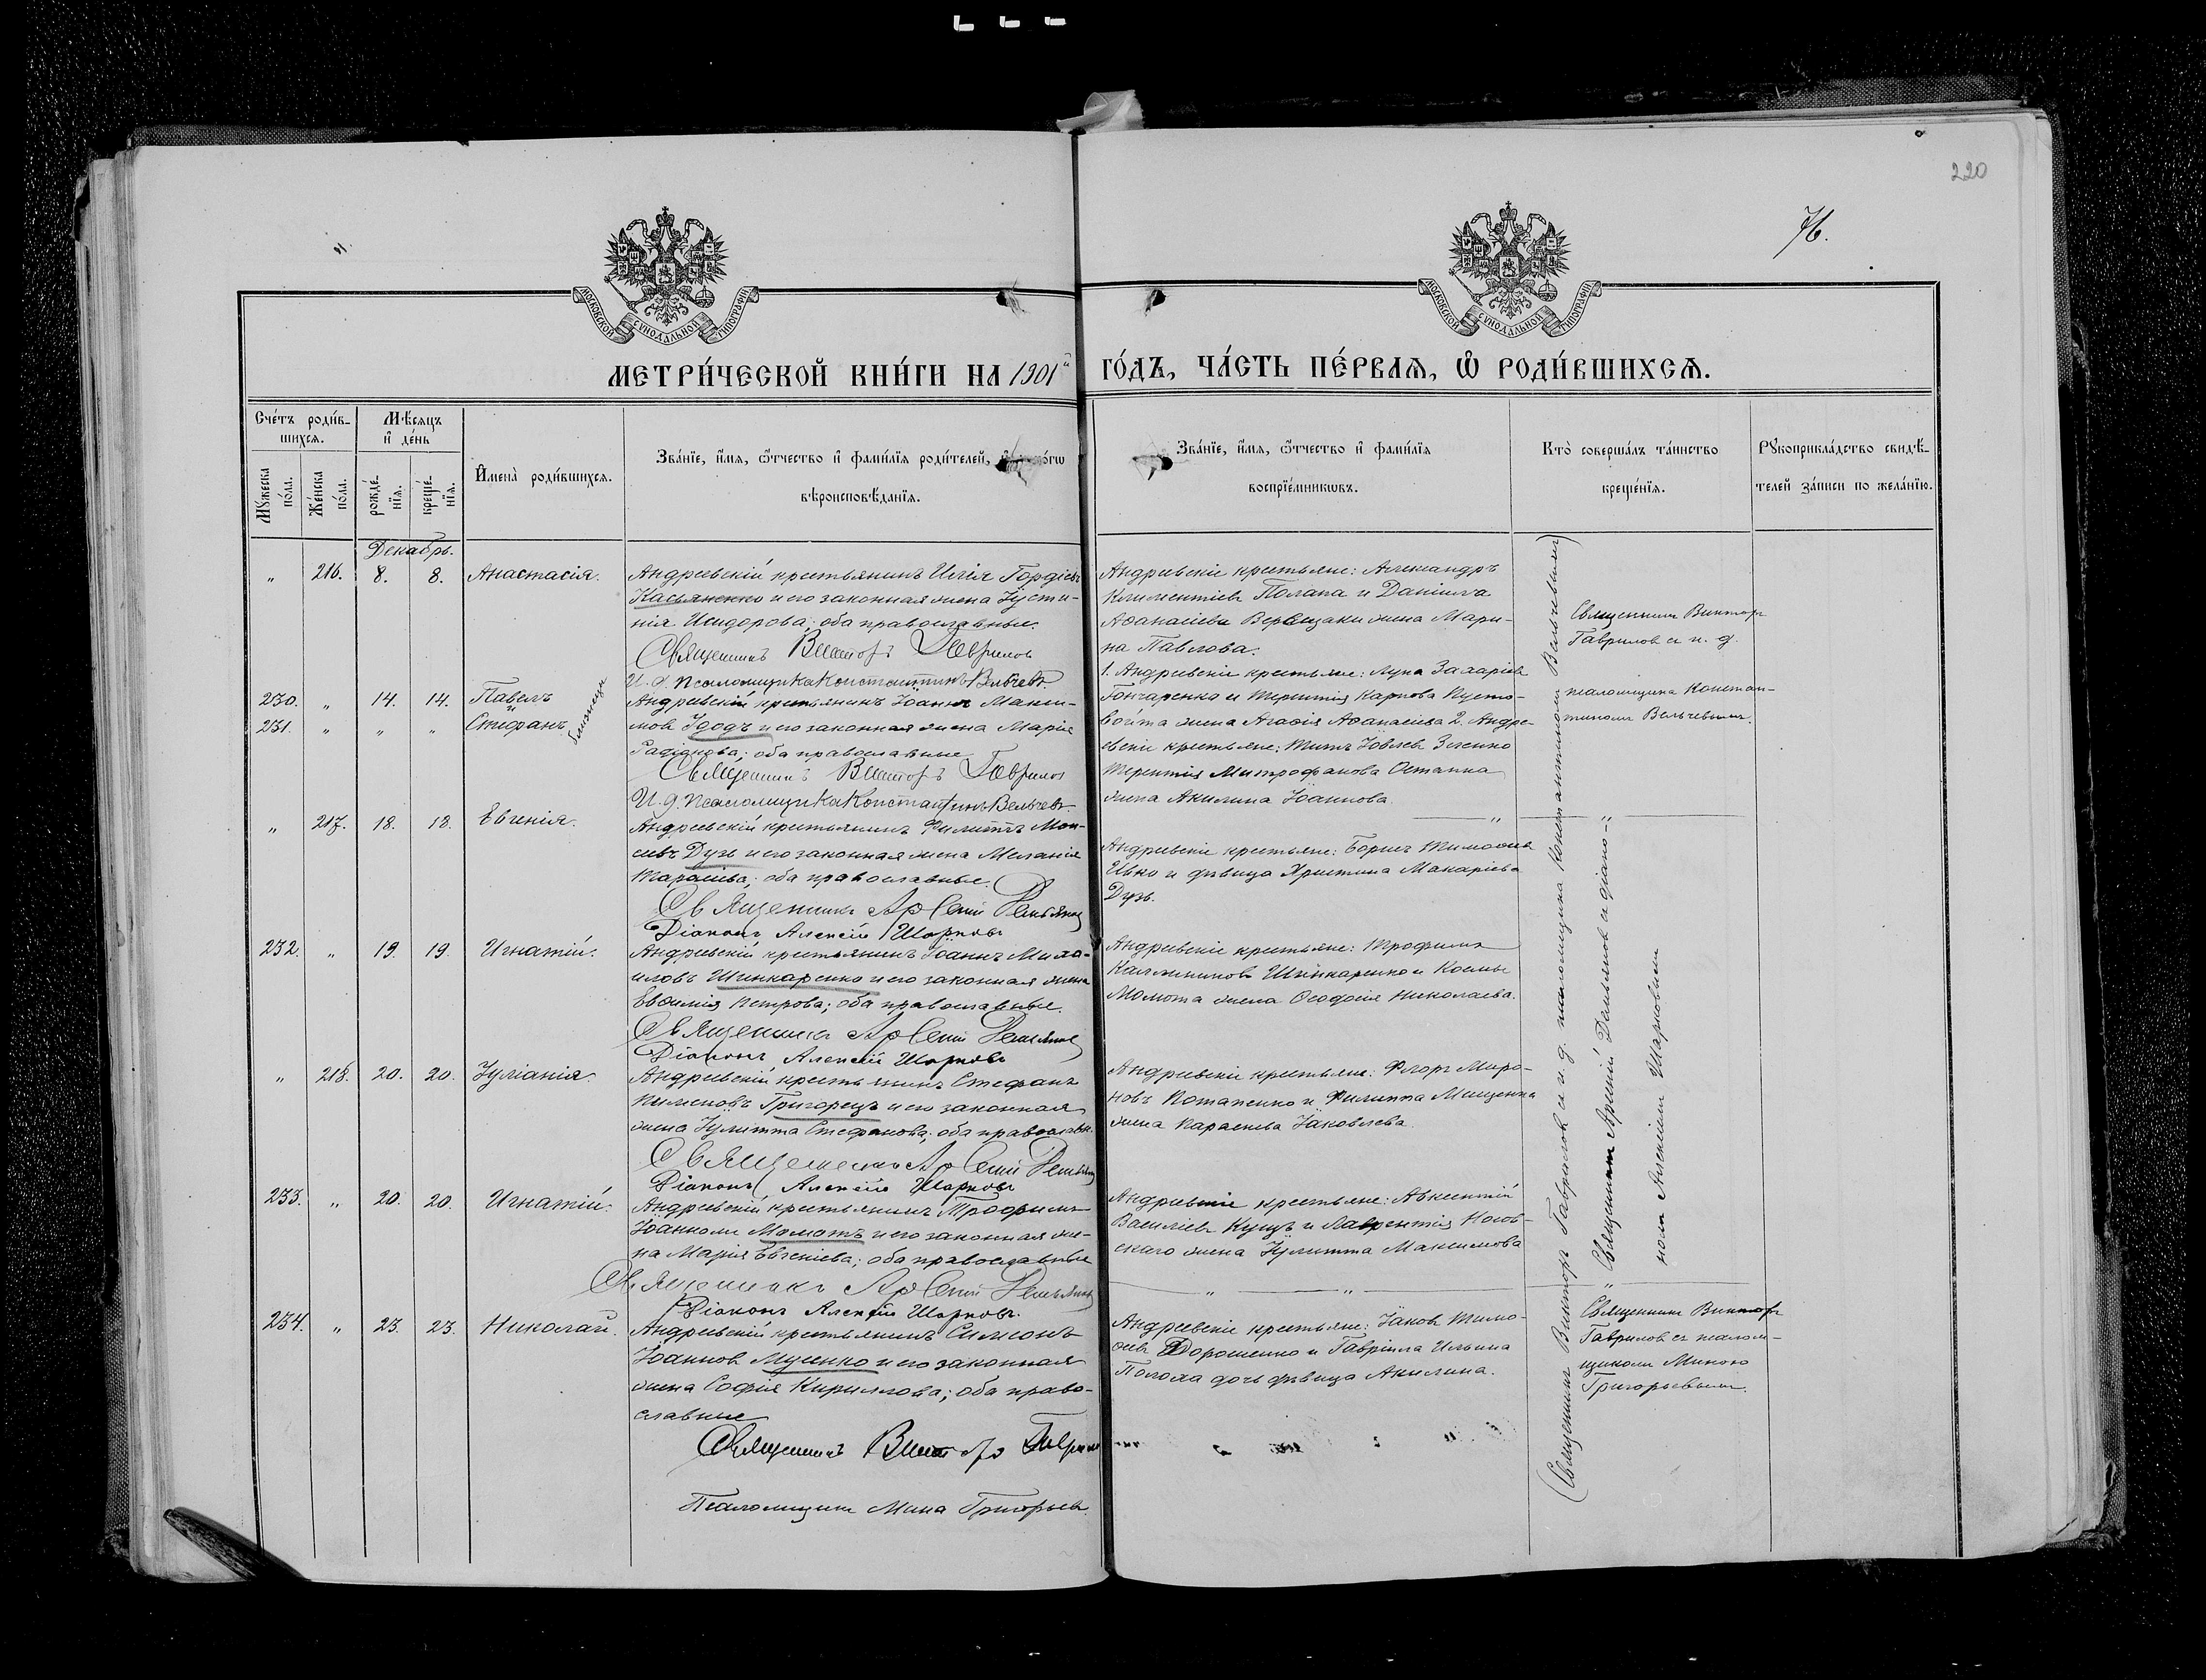 220
76.
МОСКОВСКОЙ СУНОДАЛЬНОЙ ТИПОГРАФІИ
МОСКОВСКОЙ СУНОДАЛЬНОЙ ТИПОГРАФІИ
МЕТРИ́ЧЕСКОЙ КНИ́ГИ НА 1901й ГО́ДЪ, ЧА́СТЬ ПЕ́РВАѦ, Ѡ РОДИ́ВШИХСѦ.
Сче́тъ роди́в-
шихсѧ.
Мꙋ́жеска по́ла.
Же́нска по́ла.
Мѣ́сяцъ
и҆ де́нь
рожде́-
нїѧ.
креще́-
нїѧ.
И҆мена̀ роди́вшихсѧ.
Зва́нїе, и҆́мѧ, ѻ҆́тчество и҆ фами́лїѧ роди́телей,
вѣроисповѣ́данїѧ.
Зва́нїе, и҆́мѧ, ѻ҆́тчество и҆ фами́лїѧ
воспрїе́мникѡвъ.
Кто̀ соверша́лъ та́инство
креще́нїѧ.
Рꙋкоприкла́дство свидѣ́-
телей за́писи по жела́нїю.
Декабрь.
" 216. 8. 8. Анастасія.
Андреевскій крестьянинъ Илія Гордіевъ
Касьяненко и его законная жена Іусти-
нія Исидорова; оба православные.
Священникъ Викторъ Гавриловъ
И. д. псаломщика Константинъ Вельчевъ.
Андреевскіе крестьяне: Александръ
Климентіевъ Полапа и Даніила
Аѳанасіева Верещаки жена Мари-
на Павлова.
Священникъ Викторъ
Гавриловъ съ и. д.
псаломщика Констан-
тиномъ Вельчевымъ.
230. " 14. 14. Павелъ
231. " " " Стефанъ
близнецы
Андреевскій крестьянинъ Іоаннъ Макси-
мовъ Удодъ и его законная жена Марія
Родіонова; оба православные
Священникъ Викторъ Гавриловъ
И. д. псаломщика Константинъ Вельчевъ.
1. Андреевскіе крестьяне: Лука Захаріевъ
Гончаренко и Терентія Карпова Пусто-
войта жена Агаѳія Аѳанасіева 2. Андре-
евскіе крестьяне: Титъ Іовлевъ Зеленко
Терентія Митрофанова Остапка
жена Акилина Іоаннова.
" 217. 18. 18. Евгенія.
Андреевскій крестьянинъ Филиппъ Мои-
сеевъ Дузь и его законная жена Меланія
Тарасіева; оба православные.
Священникъ Арсеній Демьяновъ
Діаконъ Алексій Шарковъ
Андреевскіе крестьяне: Борисъ Тимоѳеевъ
Ивко и дѣвица Христина Макаріева
Дузь.
232. " 19. 19. Игнатій.
Андреевскій крестьянинъ Іоаннъ Миха-
иловъ Шинкаренко и его законная жена
Евѳимія Петрова; оба православные.
Священникъ Арсеній Демьяновъ
Діаконъ Алексій Шарковъ
Андреевскіе крестьяне: Трофимъ
Каллиниковъ Шинкаренко и Космы
Момота жена Ѳеодосія Николаева.
" 218. 20. 20. Іуліанія.
Андреевскій крестьянинъ Стефанъ
Пименовъ Григорецъ и его законная
жена Іулитта Стефанова; оба православн.
Священникъ Арсеній Демьяновъ
Діаконъ Алексій Шарковъ
Андреевскіе крестьяне: Флоръ Миро-
новъ Потапенко и Филиппа Мищенка
жена Параскева Іаковлева.
233. " 20. 20. Игнатій.
Андреевскій крестьянинъ Трофимъ
Іоанновъ Момотъ и его законная же-
на Марія Евгеніева; оба православные
Священникъ Арсеній Демьяновъ
Діаконъ Алексій Шарковъ.
Андреевскіе крестьяне: Авксентій
Василіевъ Куцъ и Лаврентія Носов-
скаго жена Іулитта Максимова
234. " 23. 23. Николай.
Андреевскій крестьянинъ Симеонъ
Іоанновъ Мусенко и его законная
жена Софія Кириллова; оба право-
славные
Священникъ Викторъ Гавриловъ
Псаломщикъ Мина Григорьевъ.
Андреевскіе крестьяне: Іаковъ Тимо-
ѳеевъ Дорошенко и Гавріила Ильина
Полоха дочь дѣвица Акилина.
Священникъ Викторъ
Гавриловъ съ псалом-
щикомъ Миною
Григорьевымъ.
(Священникъ Викторъ Гавриловъ съ и. д. псаломщика Константиномъ Вельчевымъ)
" Священникъ Арсеній Демьяновъ съ діако- "
номъ Алексіемъ Шарковымъ